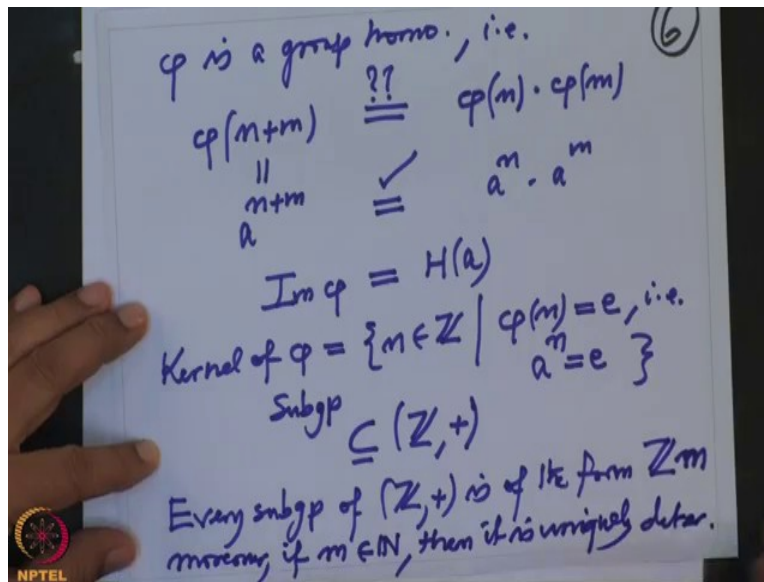 φ is a group homo., i.e.
⑥
φ(n+m) =?? φ(n)·φ(m)
॥
a^{n+m} =✓ a^n · a^m
Im φ = H(a)
Kernel of φ = {n ∈ ℤ | φ(n) = e, i.e.
a^n = e }
Subgp ⊆ (ℤ,+)
Every subgp of (ℤ,+) is of the form ℤm
moreover, if m ∈ ℕ, then it is uniquely deter.
NPTEL